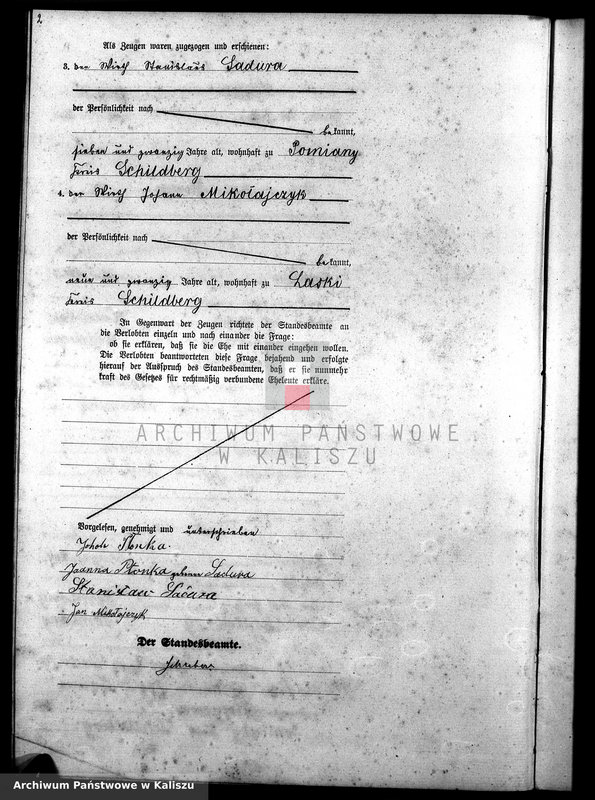 2
Als Zeugen waren zugezogen und erschienen:
3. der Wirth Stanislaus Sadura
der Persönlichkeit nach
bekannt,
sieben und zwanzig Jahre alt, wohnhaft zu Pomiany
Kreis Schildberg
4. der Wirth Johann Mikolajczyk
der Persönlichkeit nach
bekannt,
neun und zwanzig Jahre alt, wohnhaft zu Laski
Kreis Schildberg
In Gegenwart der Zeugen richtete der Standesbeamte an
die Verlobten einzeln und nach einander die Frage:
ob sie erklären, daß sie die Ehe mit einander eingehen wollen.
Die Verlobten beantworteten diese Frage bejahend und erfolgte
hierauf der Ausspruch des Standesbeamten, daß er sie nunmehr
kraft des Gesetzes für rechtmäßig verbundene Eheleute erkläre.
ARCHIWUM PAŃSTWOWE
W KALISZU
Vorgelesen, genehmigt und unterschrieben
Płonka.
Joanna Płonka geborene Sadura
Stanisław Sadura
Jan Mikołajczyk
Der Standesbeamte.
Archiwum Państwowe w Kaliszu